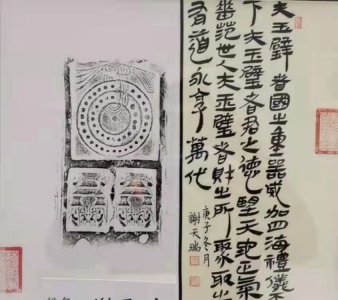 夫玉璧者國之重器威加四海禮儀天
下夫玉璧者君之德也望天地正氣
垂范世人夫玉璧者財之所聚取之
有道永享萬代
庚子冬月
謝天瑞